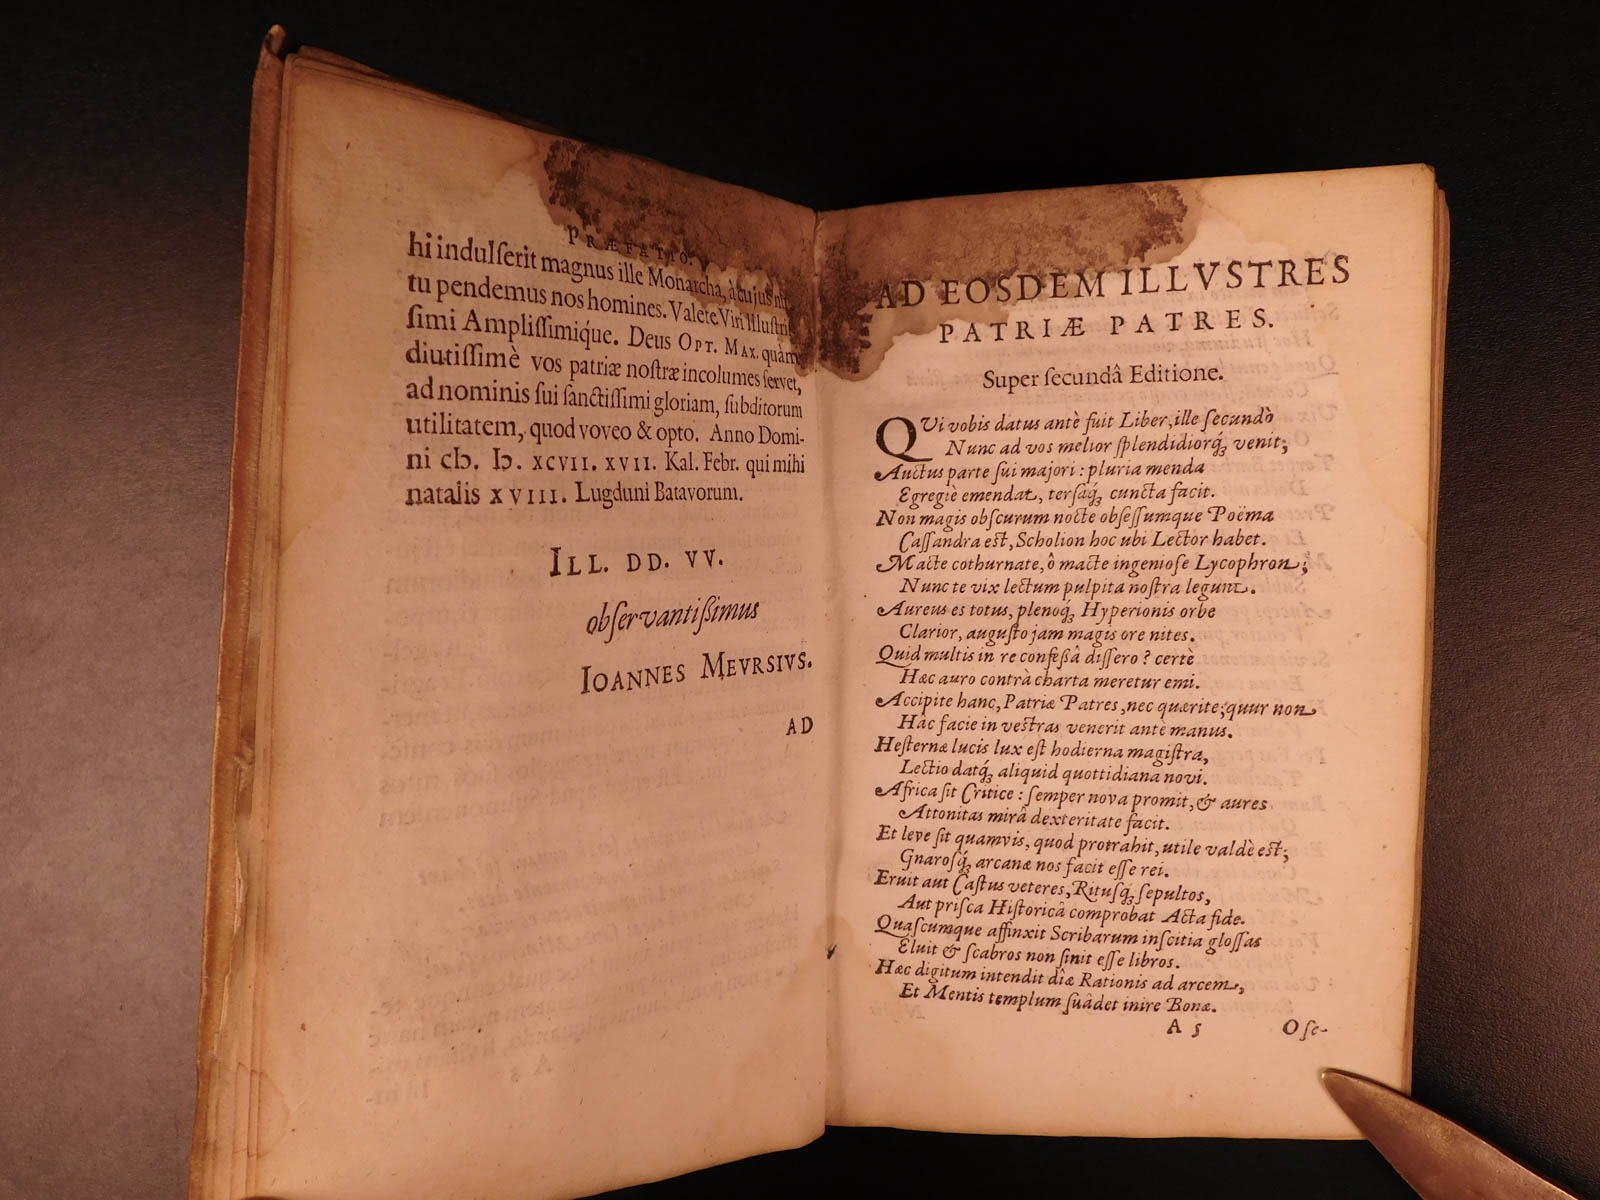 PRÆFATIO.
hi indulſerit magnus ille Monarcha, à cujus nu-
tu pendemus nos homines. Valete Viri Illuſtriſ-
ſimi Ampliſſimique. Deus OPT. MAX. quàm
diutiſſimè vos patriæ noſtræ incolumes ſervet,
ad nominis ſui ſanctiſſimi gloriam, ſubditorum
utilitatem, quod voveo & opto. Anno Domi-
ni cIɔ. Iɔ. XCVII. XVII. Kal. Febr. qui mihi
natalis XVIII. Lugduni Batavorum.
ILL. DD. VV.
obſervantißimus
IOANNES MEVRSIVS.
AD
AD EOSDEM ILLVSTRES
PATRIÆ PATRES.
Super ſecundâ Editione.
QVi vobis datus antè fuit Liber, ille ſecundò
Nunc ad vos melior ſplendidiorq́; venit;
Auctus parte ſui majori: pluria menda
Egregiè emendat, terſaq́; cuncta facit.
Non magis obſcurum nocte obſeſſumque Poëma
Caſſandra eſt, Scholion hoc ubi Lector habet.
Macte cothurnate, ô macte ingenioſe Lycophron;
Nunc te vix lectum pulpita noſtra legunt.
Aureus es totus, plenoq́; Hyperionis orbe
Clarior, auguſto jam magis ore nites.
Quid multis in re confeßâ diſſero? certè
Hæc auro contrà charta meretur emi.
Accipite hanc, Patriæ Patres, nec quærite, quur non
Hâc facie in veſtras venerit antè manus.
Heſternæ lucis lux eſt hodierna magiſtra,
Lectio datq́; aliquid quottidiana novi.
Africa ſit Critice: ſemper nova promit, & aures
Attonitas mirâ dexteritate facit.
Et leve ſit quamvis, quod protrahit, utile valdè eſt;
Gnaroſq́; arcanæ nos facit eſſe rei.
Eruit aut Caſtus veteres, Rituſq́; ſepultos,
Aut priſca Hiſtoricâ comprobat Acta fide.
Quaſcumque affinxit Scribarum inſcitia gloſſas
Eluit & ſcabros non ſinit eſſe libros.
Hæc digitum intendit dîæ Rationis ad arcem,
Et Mentis templum ſuâdet inire Bonæ.
A 5 Oſe-